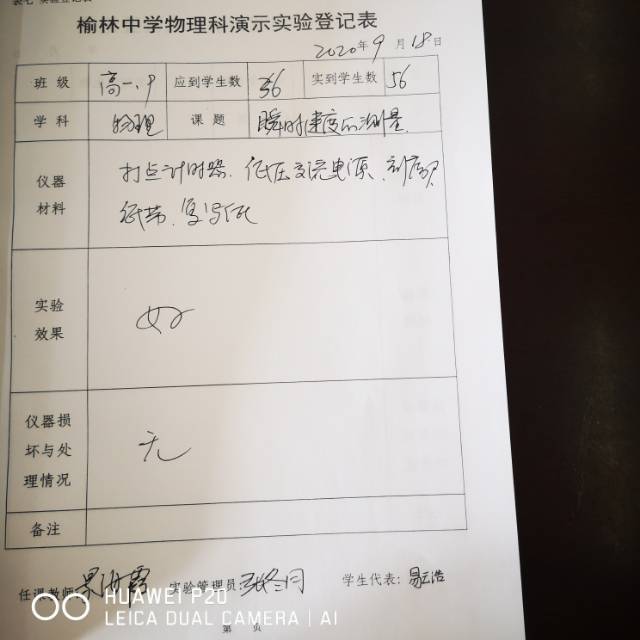 表七 实验登记表
榆林中学物理科演示实验登记表
2020年9月18日
班级 高一、9 应到学生数 56 实到学生数 56
学科 物理 课题 瞬时速度的测量
仪器材料 打点计时器、低压交流电源、刻度尺
纸带、复写纸
实验效果 好
仪器损坏与处理情况 无
备注
任课教师: 实验管理员: 学生代表:
第 页
HUAWEI P20
LEICA DUAL CAMERA | AI